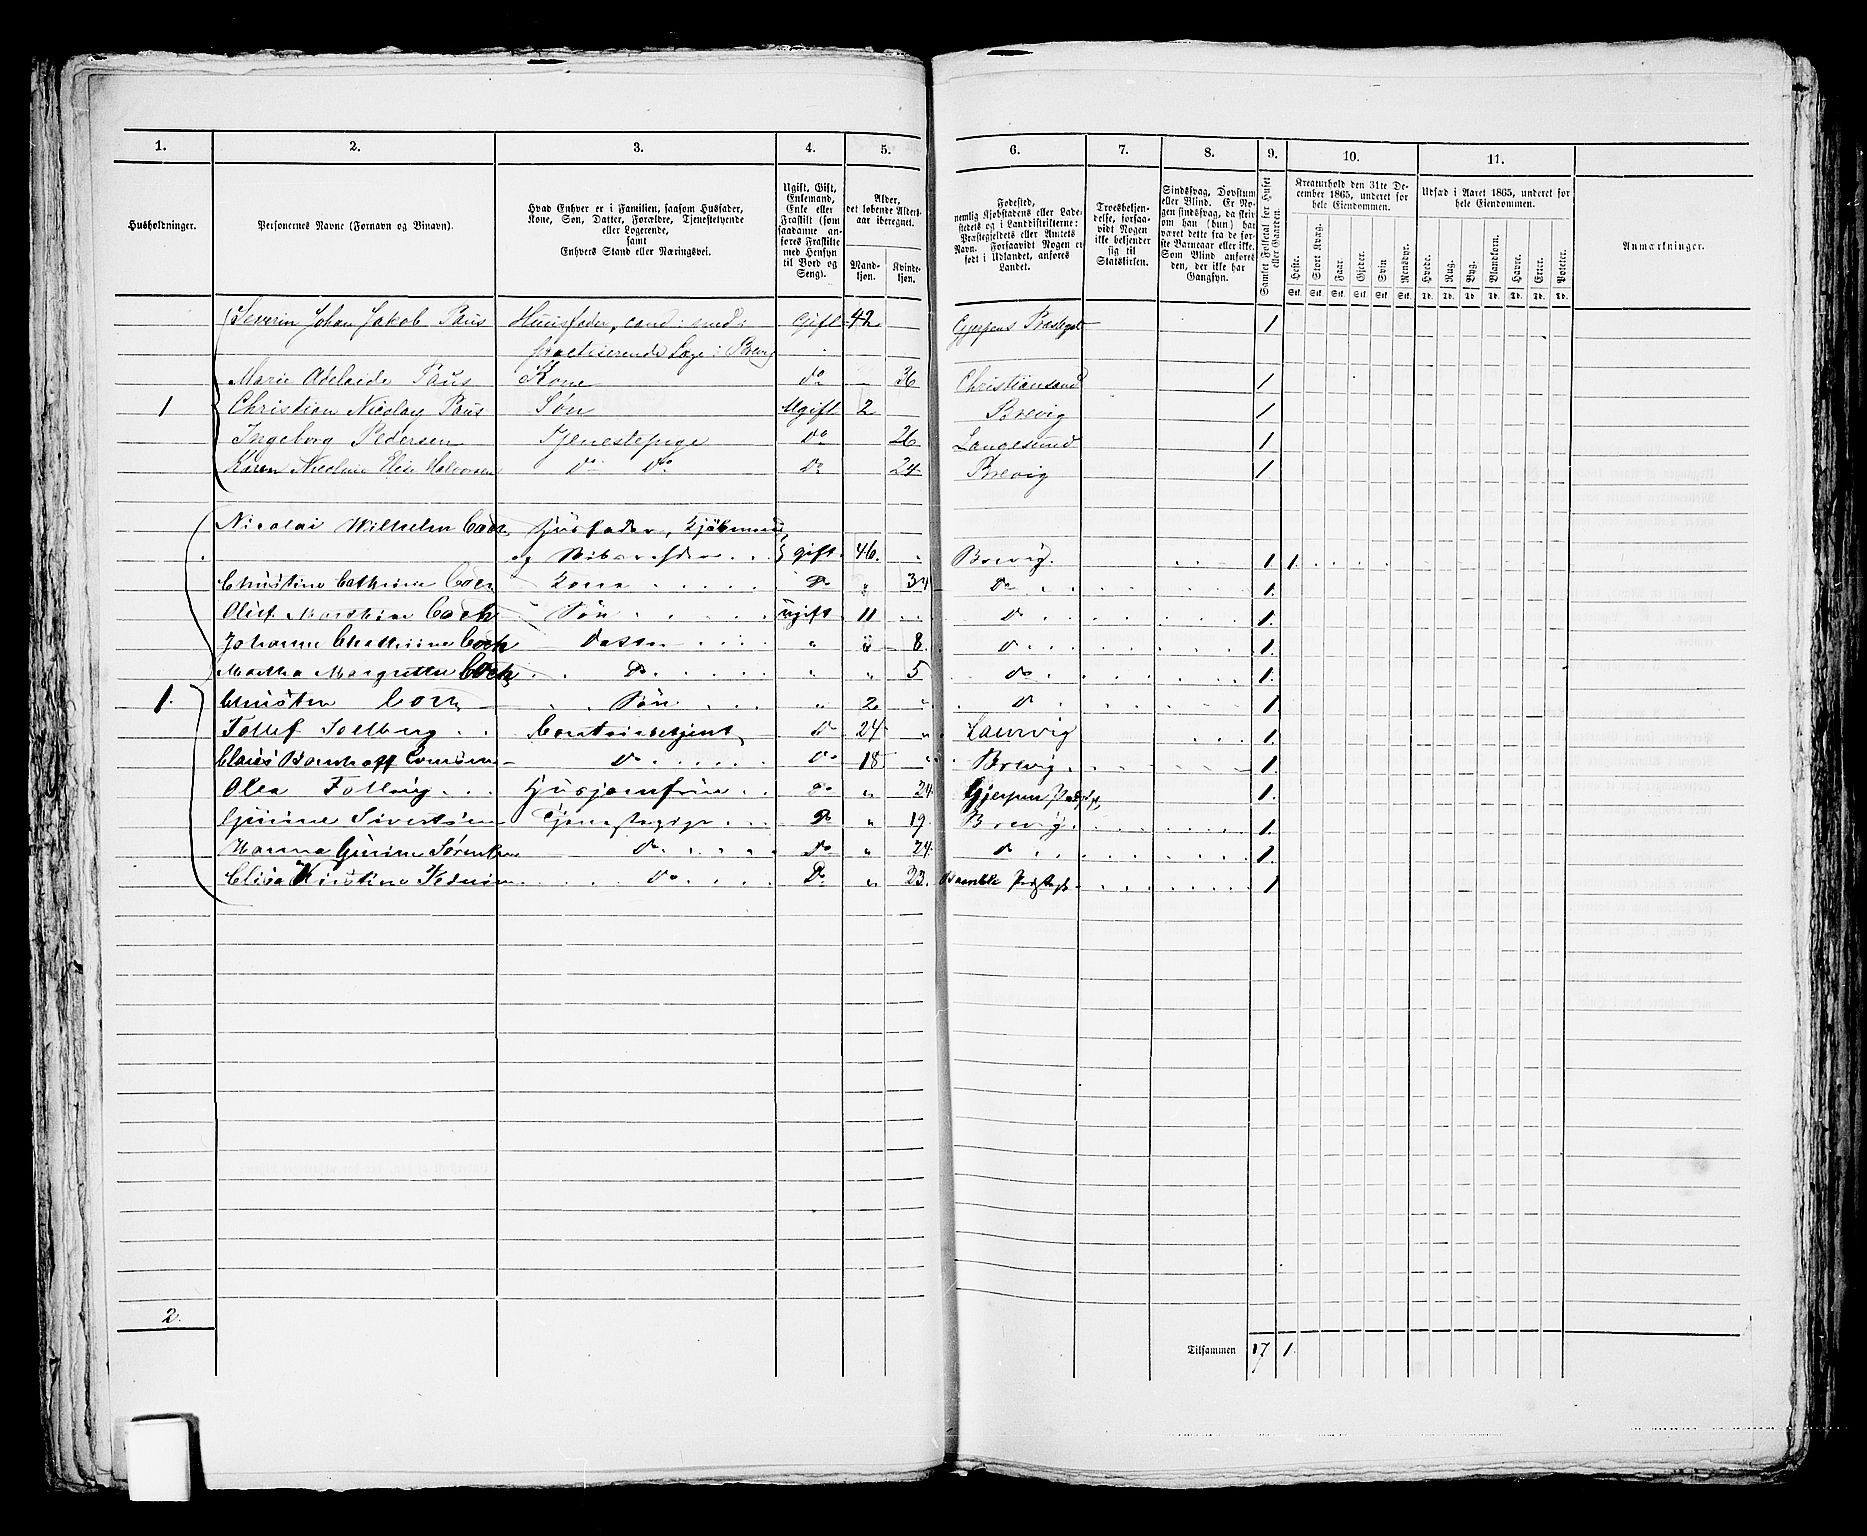 1. 2. 3. 4. 5. 6. 7. 8. 9. 10. 11.
Husholdninger.
Personernes Navne (Fornavn og Binavn).
Hvad Enhver er i Familien, saasom Husfader,
Kone, Søn, Datter, Forældre, Tjenestetyende
eller Logerende,
samt
Enhvers Stand eller Næringsvei.
Ugift, Gift,
Enkemand,
Enke eller
Fraskilt (som
saadanne an-
føres Fraskilte
med Hensyn
til Bord og
Seng).
Alder,
det løbende Alders-
aar iberegnet.
Mand-
kjøn.
Kvinde-
kjøn.
Fødested,
nemlig Kjøbstadens eller Lade-
stedets og i Landdistrikterne:
Præstegjeldets eller Annexets
Navn. Forsaavidt Nogen er
født i Udlandet, anføres
Landet.
Troesbekjen-
delse, forsaa-
vidt Nogen
ikke bekjender
sig til
Statskirken.
Sindssvag, Døvstum
eller Blind. Er No-
gen sindssvag, da skriv
om han (hun) har
været dette fra de før-
ste Barneaar eller ikke.
Som Blind anføres
den, der ikke har
Gangsyn.
Samlet Folketal for Huset
eller Gaarden.
Kreaturhold den 31te De-
cember 1865, underet for
hele Eiendommen.
Heste. Stort Kvæg. Faar. Gjeder. Svin. Rensdyr.
Stk. Stk. Stk. Stk. Stk. Stk.
Udsæd i Aaret 1865, underet for
hele Eiendommen.
Hvede. Rug. Byg. Blandkorn. Havre. Erter. Poteter.
Td. Td. Td. Td. Td. Td. Td.
Anmærkninger.
Severin Johan Jakob Paus Huusfader, cand: med: Gift 42 Gjerpens Præstegjld 1
practiserende Læge i Brevig
Marie Adelaide Paus Kone do 36 Christiansand 1
1 Christian Nicolay Paus Søn Ugift 2 Brevig 1
Ingeborg Pedersen Tjenestepige do 26 Langesund 1
Karen Nicoline Elise Halvorsen do do do 24 Brevig 1
Nicolai Wilhelm Coch Husfader, Kjøbmand
og Skibsreder gift 46. Brevig. 1 1.
Christine Cathrine Coch Kone Do " 34 do 1.
Oluf Marthin Coch Søn ugift 11 do 1.
Johanne Chathrine Coch Datter " " 8. do 1.
Martha Margrethe Coch Do " " 5 do 1.
1. Christen Coch Søn " 2 " do 1
Tollef Solberg Contoirbetjent do 24 " Laurvig 1.
Claus do do 18 Brevig. 1.
Olea Husjomfrue do " 24 Gjerpen Prstgjld, 1.
Gurine Sivertsen Tjenestepige Do " 19. Brevig. 1.
Hanna Gurine Sørensen do do " 24. do 1.
Elisa Kirstine do Do " 23. Bamble Prstgjld. 1
2.
Tilsammen 17 1.